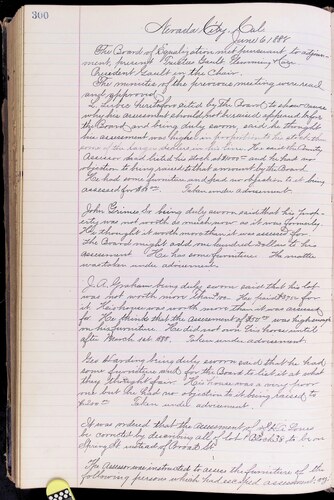 300
Nevada City, Cal
June 6, 1888
The Board of Equalization met pursuant to adjourn-
ment, present
President Gault in the Chair.
The minutes of the previous meeting were read
and approved.
cited by the Board, to show cause
why his assessment should not be raised appeared before
the Board, and being duly sworn, said he thought
his assessment was high
some of the larger dealers in his line. He said the County
Assessor had listed his stock at and he had no
objection to being raised to that amount by the Board.
He had some furniture and had no objection to it being
assessed for Taken under advisement.
John Grimes Sr being duly sworn said that his prop-
erty was not worth as much now as it was formerly.
He thought it worth more than it was assessed for
The Board might add one hundred dollars to his
assessment. He has some furniture. The matter
was taken under advisement.
J. A. Graham being duly sworn said that his lot
was not worth more than He paid for
it. His house was worth more than it was assessed
for. He thinks that the assessment of was high enough
on his furniture. He did not own his horse until
after March 1st 1888. Taken under advisement.
Geo Harding being duly sworn said that he had
some furniture and for the Board to list it at what
they thought fair. His house was a very poor
one but he had no objection to its being raised to
Taken under advisement.
It was ordered that the assessment of
be corrected by describing all of lot Block to be on
Spring St instead of Broad St.
The Assessor was instructed to assess the furniture of the
following persons which had escaped assessment,